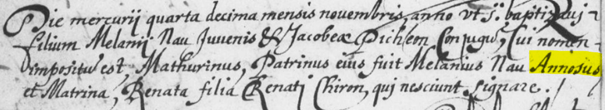 Die mercurii quarta decima mensis novembris, anno vt s.ª baptizavi
filium Melanii Nau Juvenis & Jacobeæ Pichon Conjugū, Cui nomen
impositū est, Mathurinus, Patrinus eius fuit Melanius Nau Annosus
et Matrina, Renata filia Renati Chiron, quj nesciunt signare.